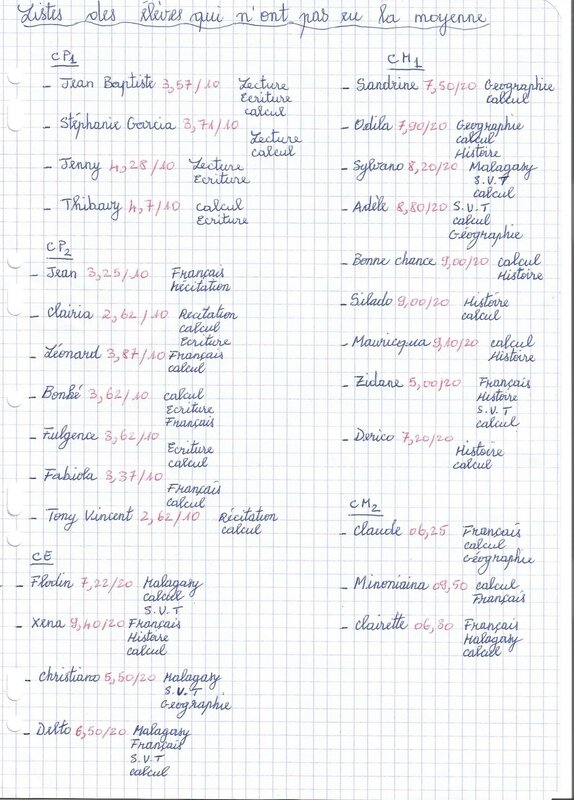 Listes des élèves qui n'ont pas eu la moyenne
CP1
- Jean Baptiste 3,57/10 Lecture
Ecriture
calcul
- Stéphanie Garcia 3,71/10
Lecture
calcul
- Jenny 4,28/10 Lecture
Ecriture
- Thibavy 4,7/10 calcul
Ecriture
CP2
- Jean 3,25/10 Français
Récitation
- Clairia 2,62/10 Récitation
calcul
Ecriture
- Léonard 3,87/10 Français
calcul
- Bonké 3,62/10 calcul
Ecriture
Français
- Fulgence 3,62/10
Ecriture
calcul
- Fabiola 3,37/10
Français
calcul
- Tony Vincent 2,62/10 Récitation
calcul
CE
- Flodin 7,22/20 Malagasy
calcul
S.V.T
- Xena 9,40/20 Français
Histoire
calcul
- Christiano 5,50/20 Malagasy
S.V.T
Géographie
- Delto 6,50/20 Malagasy
Français
S.V.T
calcul
CM1
- Sandrine 7,50/20 Géographie
calcul
- Odila 7,90/20 Géographie
calcul
Histoire
- Sylvano 8,20/20 Malagasy
S.V.T
calcul
- Adèle 8,80/20 S.V.T
calcul
Géographie
- Bonne chance 9,00/20 calcul
Histoire
- Silado 9,00/20 Histoire
calcul
- Mauricqua 9,10/20 calcul
Histoire
- Zidane 5,00/20 Français
Histoire
S.V.T
calcul
- Derico 7,20/20
Histoire
calcul
CM2
- Claude 06,25 Français
calcul
Géographie
- Minoniaina 09,50 calcul
Français
- Clairette 06,30 Français
Malagasy
calcul